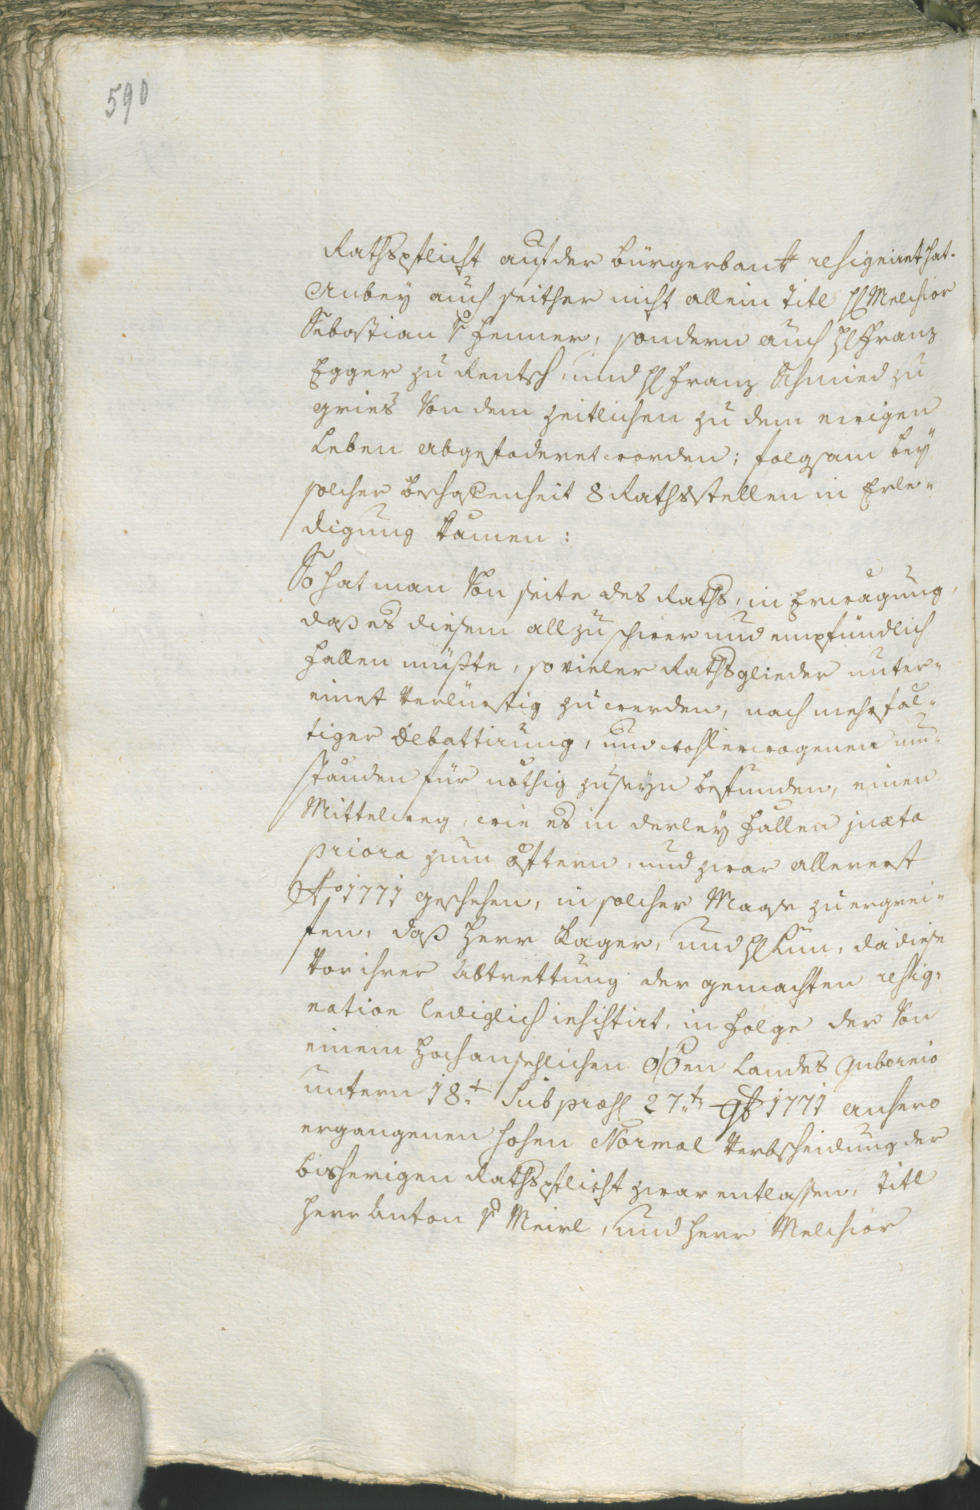 590
Rathspflicht auf der Bürgerbank resigniret hat.
Anbey auch seither nicht allein Titl H Melchior
Sebastian v Hemner, sondern auch H Franz
Egger zu Rentsch, und H Franz Schmied zu
Gries von dem zeitlichen zu dem ewigen
Leben abgefoderet worden; folgsam bey
solcher Beschaffenheit 8 Rathsstellen in Erle-
digung kamen:
So hat man von seite des Raths, in Erwägung,
daß es diesem allzu schwer und empfindlich
fallen müßte, so vieler Rathsglieder unter-
einst verlurstig zu werden, nach mehrfäl-
tiger Debattirung, und wohlerwogenen um-
ständen für nöthig zu seyn befunden, einen
Mittelweg, wie es in derley Fällen juxta
priora zum öftern, und zwar allererst
Ao 1771 geschehen, in solcher Maße zu ergrei-
fen, daß Herr Kager, und H Kun, da diese
vor ihrer Abtrettung der gemachten resig-
nation lediglich insistirt, in Folge der von
einem Hochansehlichen O/Ö en Landes Gubernio
untern 18t Sub præs 27t 9b 1771 anhero
ergangenen hohen Normal Verbscheidung der
bisherigen Rathspflicht zwar entlassen, Titl
Herr Anton v Meirl, und Herr Melchior